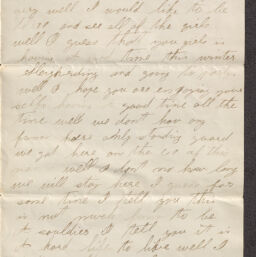 very well I would like to be
and see all of the girls
well I guess that you girls is
having a time this winter
Sleighriding and going to partys
well I hope you are enjoying your
selfs having a good time all the
time well we dont have any
fun here only standing guard
we got here on the of this
well I dont no how long
we will stay here I guess for
some time I tell you this
is not much fun to be
a souldier I tell you it is
a hard life to live well I